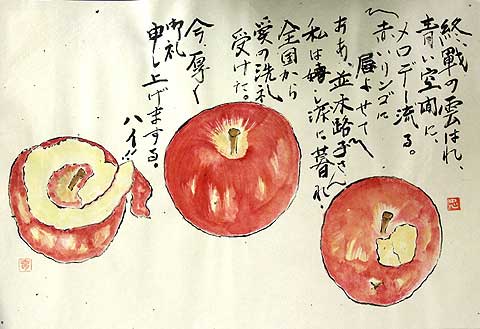 終戦の雲はれ、
青い空間に、
メロデー流る。
〽赤いリンゴに
唇よせて〽
ああ、並木路子さん
私は嬉し涙に暮れ、
全国から
愛の洗礼
受けた。
今厚く
御礼
申し上げまする。
ハイ!!